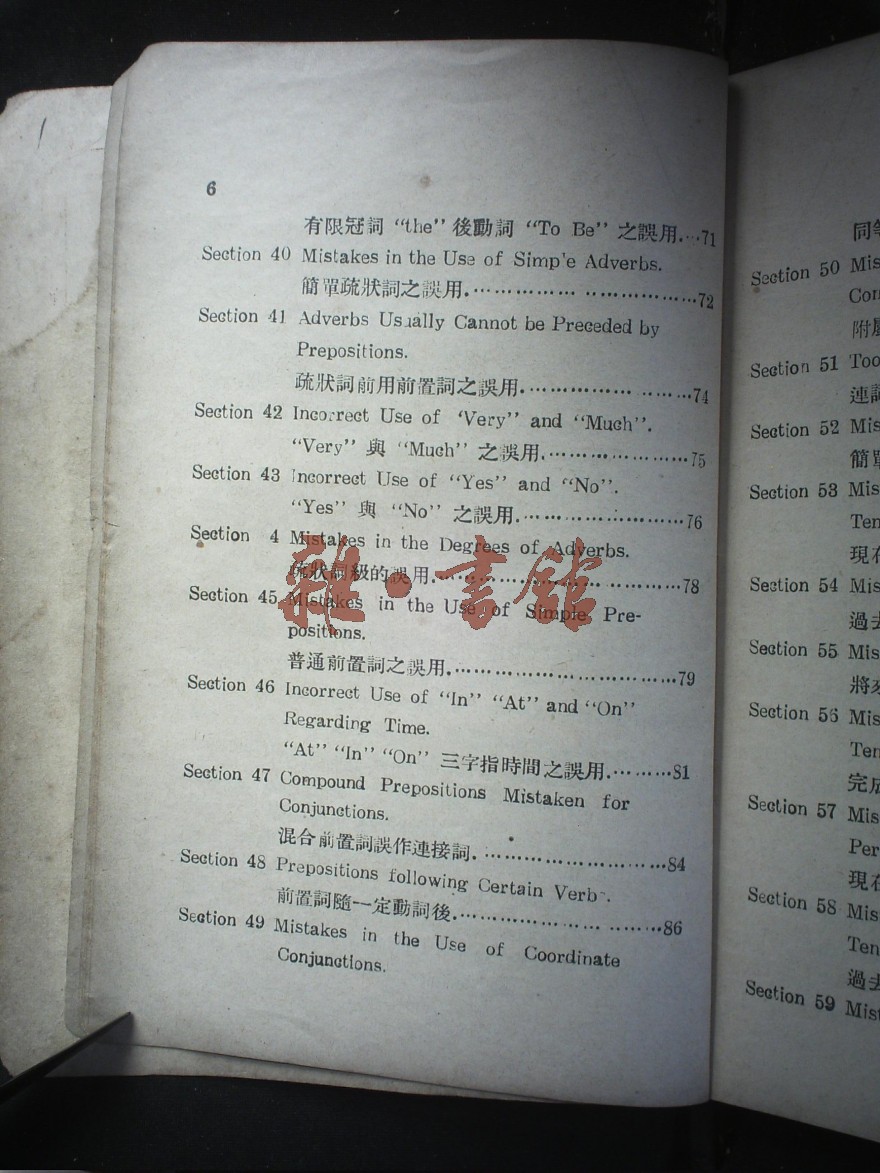 6
有限冠詞 “the” 後動詞 “To Be” 之誤用....71
Section 40 Mistakes in the Use of Simp'e Adverbs.
簡單疏狀詞之誤用.................................72
Section 41 Adverbs Usually Cannot be Preceded by
Prepositions.
疏狀詞前用前置詞之誤用.........................74
Section 42 Incorrect Use of ‘Very” and “Much”.
“Very” 與 “Much” 之誤用......................75
Section 43 Incorrect Use of “Yes” and “No”.
“Yes” 與 “No” 之誤用.........................76
Section 4 Mistakes in the Degrees of Adverbs.
疏狀詞級的誤用....................................78
Section 45 Mistakes in the Use of Simple Pre-
positions.
普通前置詞之誤用.................................79
Section 46 Incorrect Use of “In” “At” and “On”
Regarding Time.
“At” “In” “On” 三字指時間之誤用..........81
Section 47 Compound Prepositions Mistaken for
Conjunctions.
混合前置詞誤作連接詞...........................84
Section 48 Prepositions following Certain Verb.
前置詞隨一定動詞後..............................86
Section 49 Mistakes in the Use of Coordinate
Conjunctions.
雜·書館
同等
Section 50 Mis
Con
附屬
Section 51 Too
連詞
Section 52 Mis
簡單
Section 53 Mis
Ten
現在
Section 54 Mis
過去
Section 55 Mis
將來
Section 56 Mis
Ten
完成
Section 57 Mis
Per
現在
Section 58 Mis
Ten
過去
Section 59 Mist